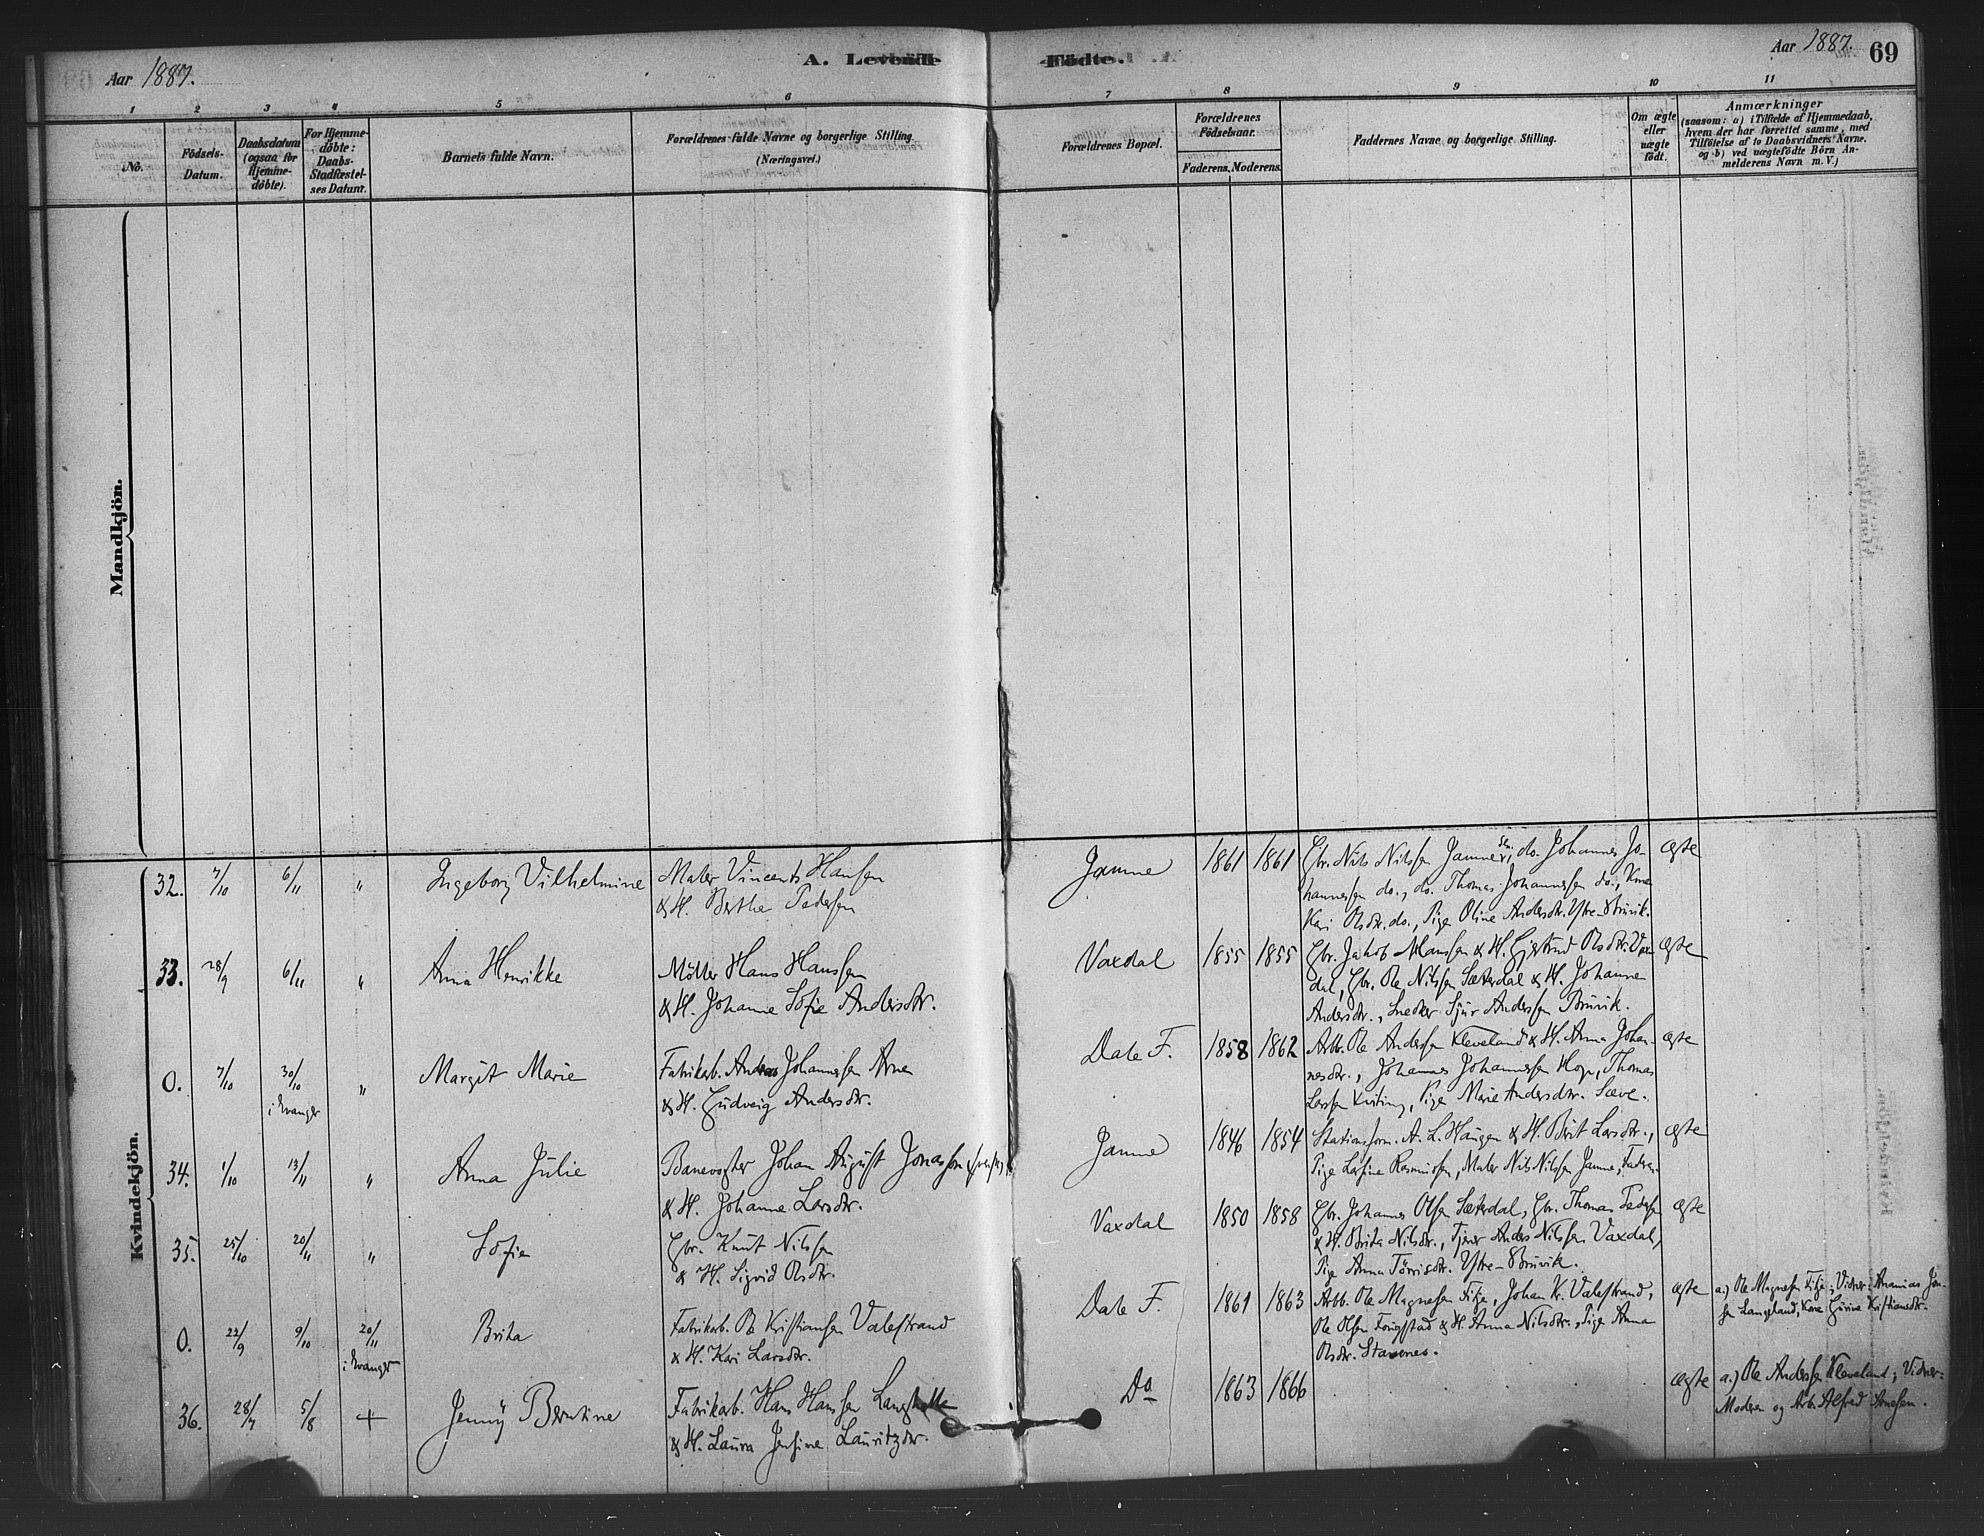 Aar 1887.
A. Levende Fødte.
Aar 1887. 69
1 2 3 4 5 6 7 8 9 10 11
No.
Fødsels-
Datum.
Daabsdatum
(ogsaa for
Hjemme-
døbte).
For Hjemme-
døbte:
Daabs-
Stadfæstel-
ses Datum.
Barnets fulde Navn.
Forældrenes fulde Navne og borgerlige Stilling.
(Næringsvei.)
Forældrenes Bopæl.
Forældrenes
Fødselsaar.
Faderens. Moderens.
Faddernes Navne og borgerlige Stilling.
Om ægte
eller
uægte
født.
Anmærkninger
(saasom: a) i Tilfælde af Hjemmedaab,
hvem der har forrettet samme, med
Tilføielse af to Daabsvidners Navne,
og b) ved uægtefødte Børn An-
melderens Navn m. V.)
Mandkjön.
Kvindekjön.
32. 7/10 6/11 " Ingeborg Vilhelmine
Maler Vincents Hansen
& H. Berthe Pedersen
Jamne 1861 1861
Gbr. Nils Nilssen Jamne, do. Johannes Jo-
hannessen do., do. Thomas Johannessen do., Kone
Kari Olsdtr. do., Pige Oline Andersdtr. Ytre-Bruvik.
ægte
33. 28/9 6/11 " Anna Henrikke
Møller Hans Hanssen
& H. Johanne Sofie Andersdtr.
Vaxdal 1855 1855
Gbr. Jakob Monssen & H. Gjertrud Olsdtr. Vax-
dal, Gbr. Ole Nilssen Sæterdal & H. Johanne
Andersdtr., Snedker Sjur Anderssen Bruvik.
ægte
0. 7/10 30/10 " Margit Marie
i Evanger
Fabrikarb. Andreas Johannessen Arne
& H. Gudveig Andersdtr.
Dale F. 1858 1862
Arb. Ole Anderssen Kleveland & H. Anna Johan-
nesdtr., Johannes Johannessen Hop, Thomas
Larssen Kviting, Pige Marie Andersdtr. Sæve.
ægte
34. 1/10 13/11 " Anna Julie
Banevogter Johan August Jonassen
& H. Johanne Larsdtr.
Jamne 1846 1854
Stationsform. A. L. Haugen & H. Berit Larsdtr.,
Pige Lasine Rasmussen, Maler Nils Nilssen Jamne, Faderen.
ægte
35. 25/10 20/11 " Sofie
Gbr. Knut Nilssen
& H. Sigrid Olsdtr.
Vaxdal 1850 1858
Gbr. Johannes Olsen Sæterdal, Gbr. Thomas Pedersen
& H. Brita Nilsdtr., Tjener Anders Nilssen Vaxdal,
Pige Anna Tørrisdtr. Ytre-Bruvik.
ægte
0. 22/9 9/10 20/11 Brita
i Evanger
Fabrikarb. Ole Kristiansen Valestrand
& H. Kari Larsdtr.
Dale F. 1861 1863
Arb. Ole Magnesen Fitje, Johan K. Valestrand,
Ole Olsen & H. Anna Nilsdtr., Pige Anna
Olsdtr. Stavenes.
ægte
a.) Ole Magnesen Fitje; Vidner: Ananias Jon-
sen Langeland, Kone Gurine Kristiansdtr.
36. 28/7 5/8 + Jenny Berntine
Fabrikarb. Hans Hanssen
& H. Laura Jensine Lauritzdtr.
Do 1863 1866
ægte
a.) Ole Anderssen Kleveland; Vidner:
Moderen og Arb. Alfred Arnesen.